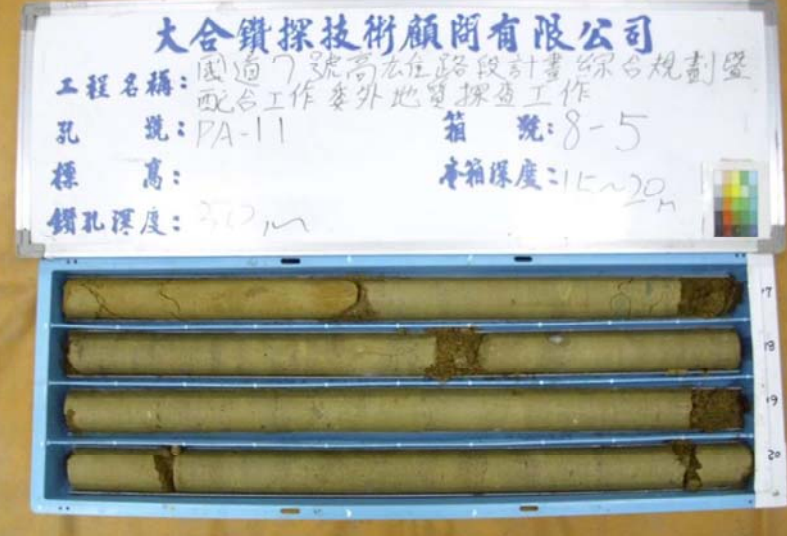 大合鑽探技術顧問有限公司
工程名稱: 國道7號高雄路段計畫綜合規劃暨
配合工作委外地質探查工作
孔 號: PA-11 箱 號: 8-5
標 高: 本箱深度: 15~20m
鑽孔深度: m
17
18
19
20